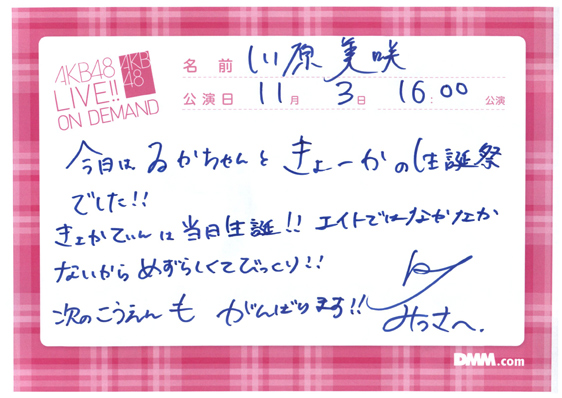 AKB48
LIVE!!
ON DEMAND
AKB
48
名前 川原美咲
公演日 11月 3日 16:00 公演
今日は るかちゃんと きょーかの生誕祭
でした!!
きょかてぃんは 当日生誕!! エイトではなかなか
ないから めずらしくてびっくり!!
次のこうえんも がんばります!!
みっさへ.
DMM.com